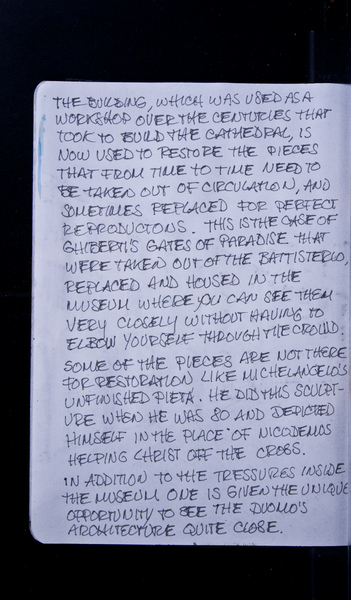 THE BUILDING, WHICH WAS USED AS A
WORKSHOP OVER THE CENTURIES THAT
TOOK TO BUILD THE CATHEDRAL, IS
NOW USED TO RESTORE THE PIECES
THAT FROM TIME TO TIME NEED TO
BE TAKEN OUT OF CIRCULATION, AND
SOMETIMES REPLACED FOR PERFECT
REPRODUCTIONS. THIS IS THE CASE OF
GHIBERTI'S GATES OF PARADISE THAT
WERE TAKEN OUT OF THE BATTISTERIO,
REPLACED AND HOUSED IN THE
MUSEUM WHERE YOU CAN SEE THEM
VERY CLOSELY WITHOUT HAVING TO
ELBOW YOURSELF THROUGH THE CROWD.
SOME OF THE PIECES ARE NOT THERE
FOR RESTORATION LIKE MICHELANGELO'S
UNFINISHED PIETA. HE DID THIS SCULPT-
URE WHEN HE WAS 80 AND DEPICTED
HIMSELF IN THE PLACE OF NICODEMOS
HELPING CHRIST OFF THE CROSS.
IN ADDITION TO THE TRESSURES INSIDE
THE MUSEUM ONE IS GIVEN THE UNIQUE
OPPORTUNITY TO SEE THE DUOMO'S
ARCHITECTURE QUITE CLOSE.